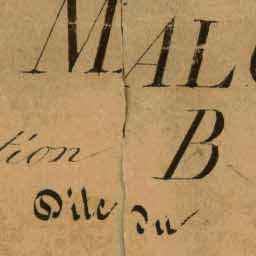 MAL
tion B
Dite du